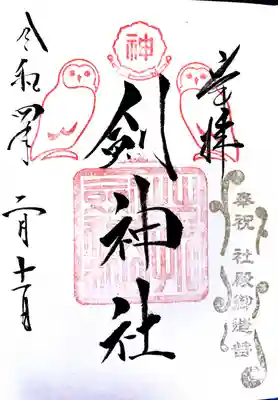 奉拝
奉祝 社殿御造替
神
剣神社
令和四年
二月十一日